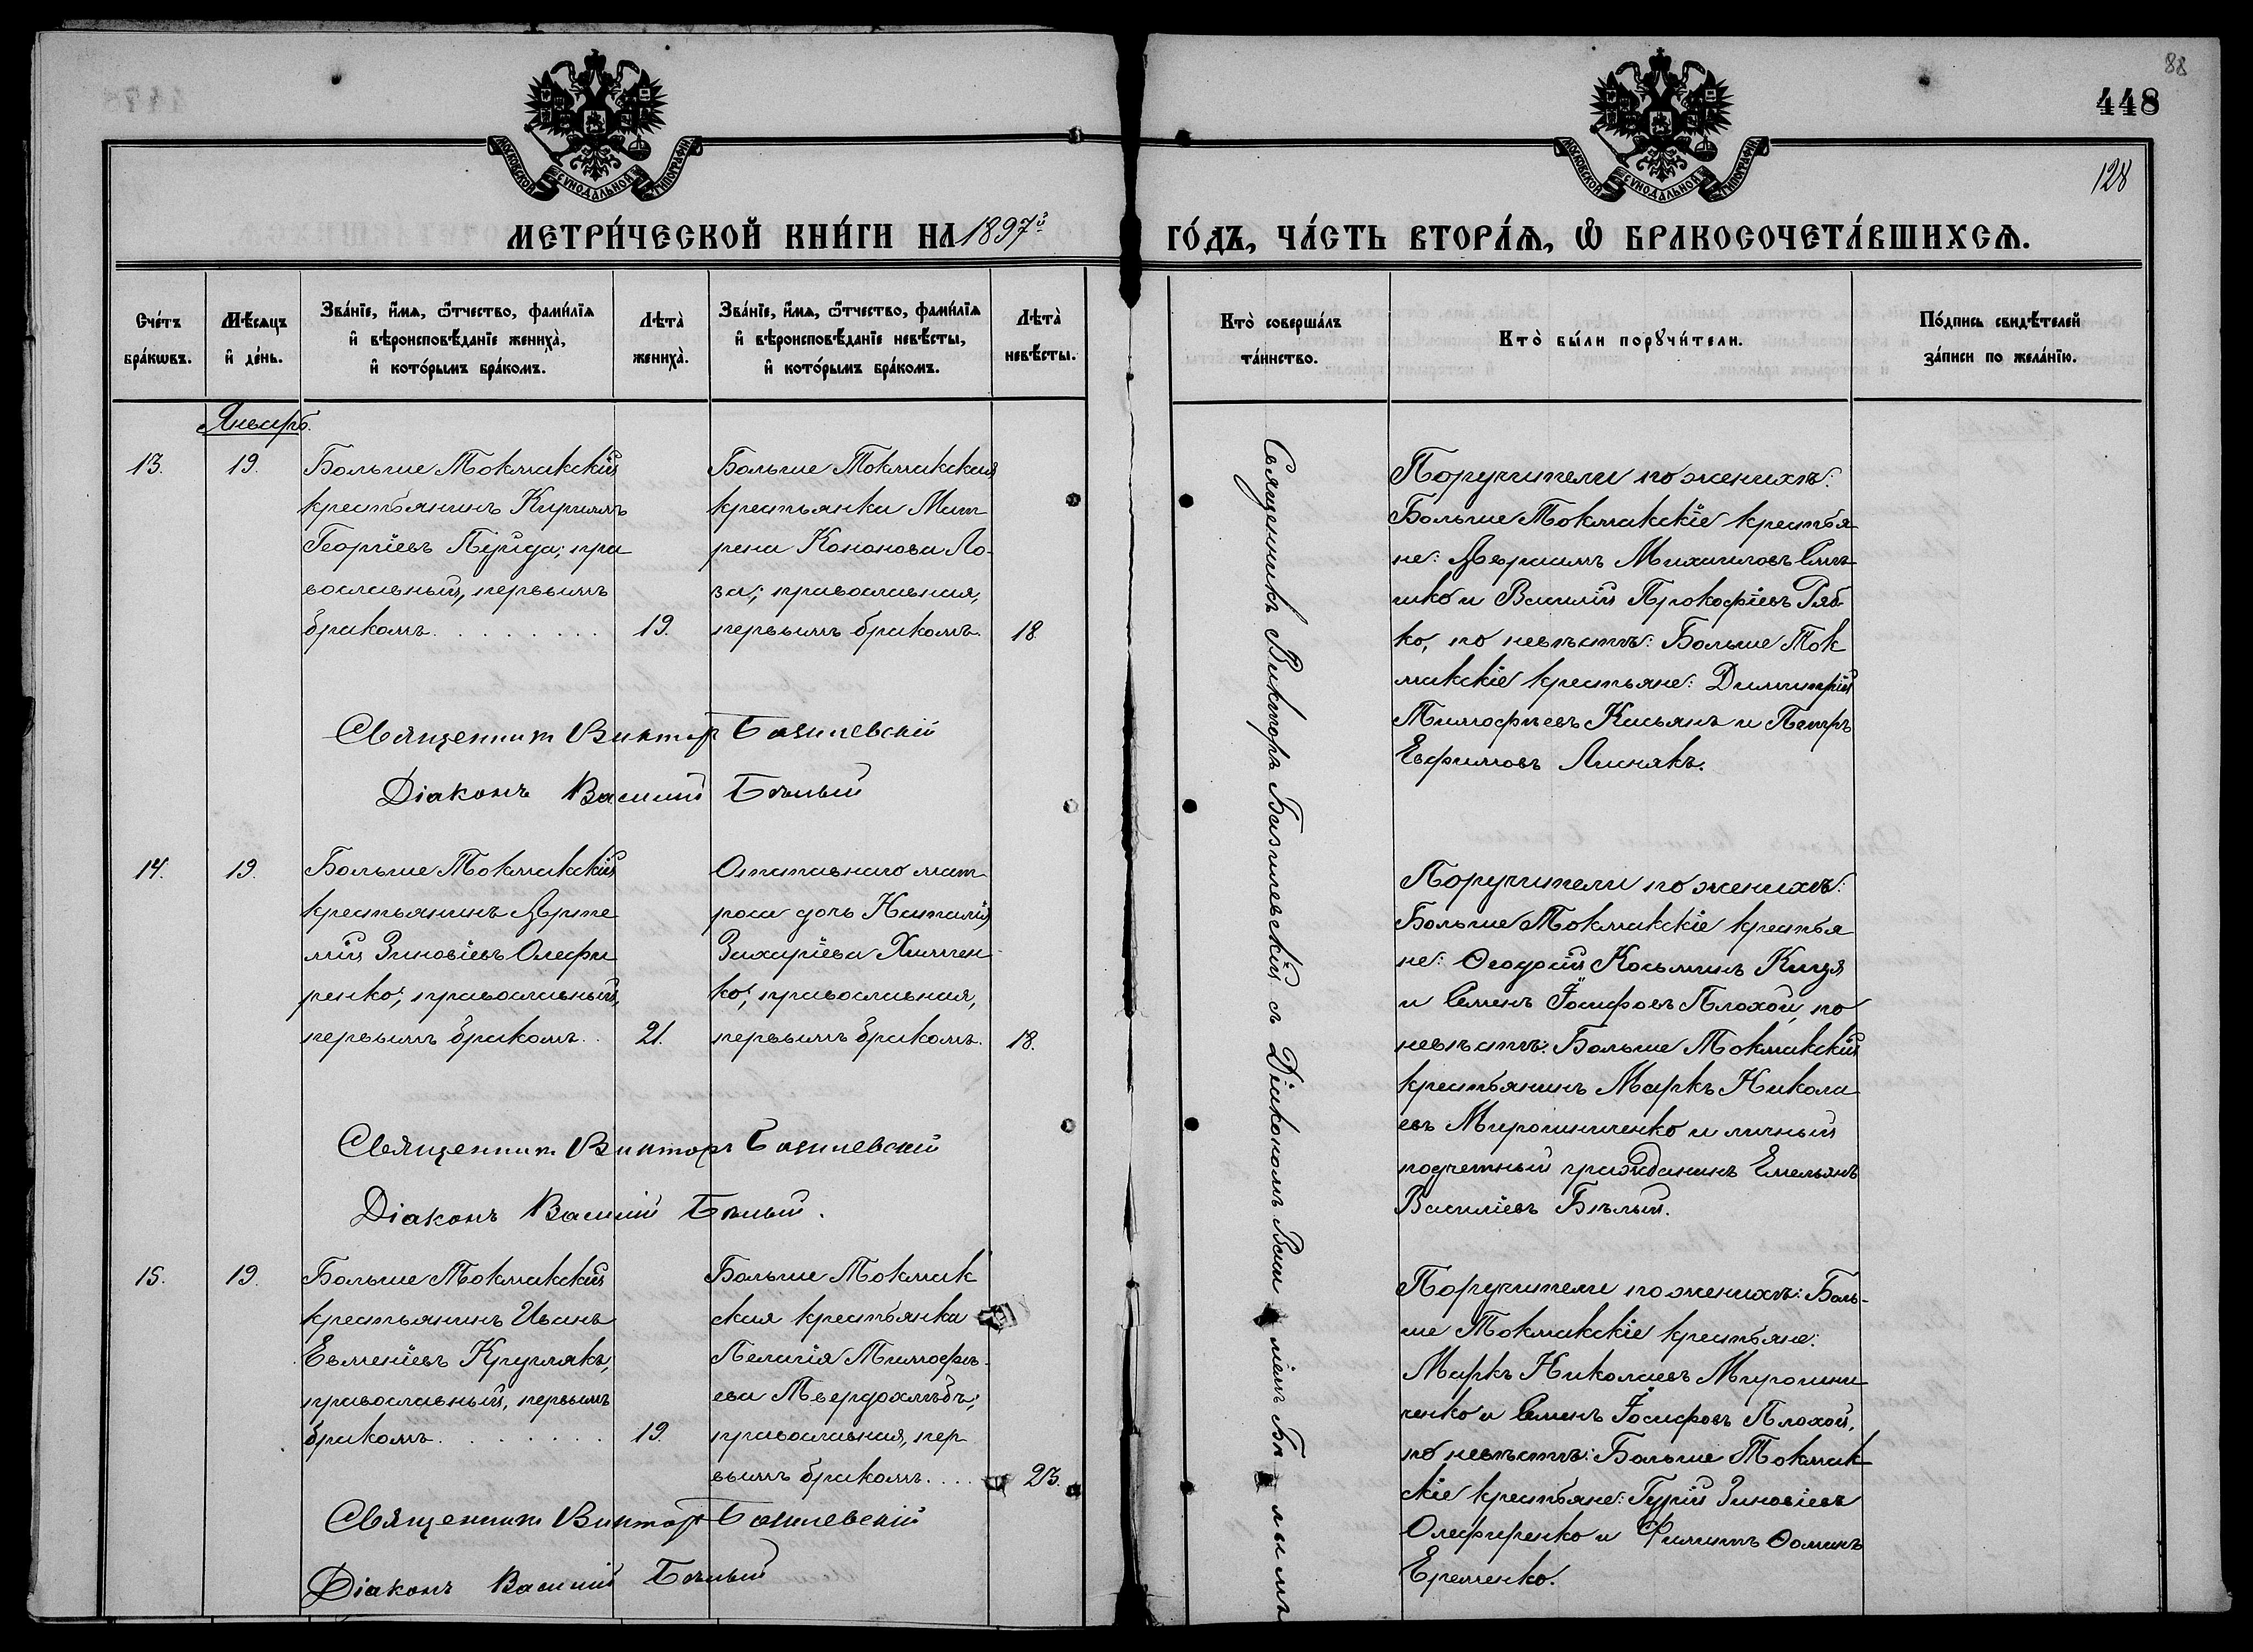 88
448
128
МОСКОВСКОЙ СѴНОДАЛЬНОЙ ТИПОГРАФІИ
МОСКОВСКОЙ СѴНОДАЛЬНОЙ ТИПОГРАФІИ
МЕТРИ́ЧЕСКОЙ КНИ́ГИ НА 1897й ГО́ДЪ, ЧА́СТЬ ВТОРА́Ѧ, Ѽ БРАКОСОЧЕТА́ВШИХСѦ.
Сче́тъ
бра́кѡвъ.
Мѣ́сяцъ
и҆ де́нь.
Зва́нїе, и҆́мѧ, ѻ҆́тчество, фами́лїѧ
и҆ вѣроисповѣ́данїе женихà,
и҆ кото́рымъ бра́комъ.
Лѣтà
женихà.
Зва́нїе, и҆́мѧ, ѻ҆́тчество, фами́лїѧ
и҆ вѣроисповѣ́данїе невѣ́сты,
и҆ кото́рымъ бра́комъ.
Лѣтà
невѣ́сты.
Ктò соверша́лъ
та́инство.
Ктò бы́ли порꙋчи́тели.
По́дпись свидѣ́телей
за́писи по жела́нїю.
Январь.
13.
19.
Больше Токмакскій
крестьянинъ Кириллъ
Георгіевъ Пуйда; пра
вославный, первымъ
бракомъ. . . . . . . .
19.
Больше Токмакская
крестьянка Мат
рена Кононова Ло-
за; православная,
первымъ бракомъ.
18
Священникъ Викторъ Базилевскій съ Діакономъ Васи ліемъ Бѣ лымъ
Поручители по женихѣ:
Больше Токмакскіе крестья
не: Авраамъ Михаиловъ
и Василій Прокофіевъ Ряб
ко, по невѣстѣ: Больше Ток
макскіе крестьяне: Димитрій
Тимофѣевъ Касьянъ и Петръ
Евфимовъ Линякъ.
Священникъ Викторъ Базилевскій
Діаконъ Василій Бѣлый
14.
19.
Больше Токмакскій
крестьянинъ Арте
мій Зиновіевъ Олефи
ренко; православный,
первымъ бракомъ. .
21.
Отставнаго мат
роса дочь Наталія
Захаріева Химчен
ко; православная,
первымъ бракомъ.
18.
Поручители по женихѣ:
Больше Токмакскіе крестья
не: Ѳеодосій Косьминъ Киця
и Семенъ Іосифовъ Плохой, по
невѣстѣ: Больше Токмакскій
крестьянинъ Маркъ Никола
евъ Мирошниченко и личный
подчетный гражданинъ Емельянъ
Василіевъ Бѣлый.
Священникъ Викторъ Базилевскій
Діаконъ Василій Бѣлый.
15.
19.
Больше Токмакскій
крестьянинъ Иванъ
Евменіевъ Круглякъ,
православный, первымъ
бракомъ. . . . . . . .
19.
Больше Токмак
ская крестьянка
Пелагія Тимофѣ-
ева Твердохлѣбъ;
православная, пер
вымъ бракомъ. . . .
23.
Поручители по женихѣ: Боль-
ше Токмакскіе крестьяне:
Маркъ Николаевъ Мирошни
ченко и Семенъ Іосифовъ Плохой,
по невѣстѣ: Больше Токмак
скіе крестьяне: Гурій Зиновіевъ
Олефиренко и Филиппъ Ѳоминъ
Еременко.
Священникъ Викторъ Базилевскій
Діаконъ Василій Бѣлый